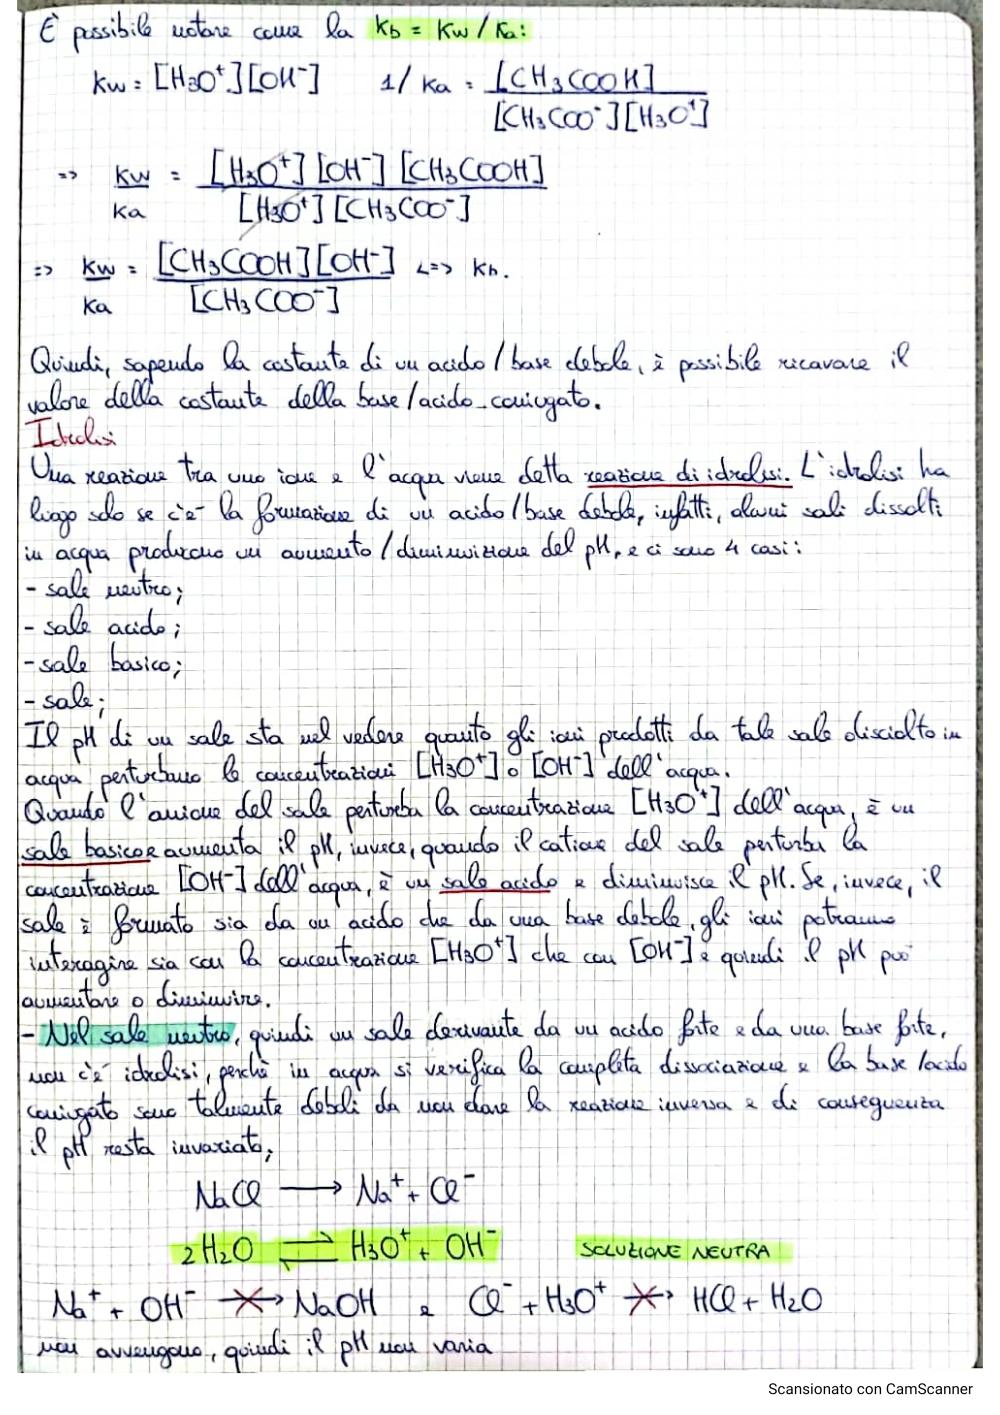 È possibile notare come la Kb = Kw / Ka:
Kw = [H3O+][OH-]   1/Ka = [CH3COOH] / [CH3COO-][H3O+]
=> Kw/Ka = [H3O+][OH-][CH3COOH] / [H3O+][CH3COO-]
=> Kw/Ka = [CH3COOH][OH-] / [CH3COO-] <=> Kb.
Quindi, sapendo la costante di un acido/base debole, è possibile ricavare il
valore della costante della base/acido coniugato.
Idrolisi
Una reazione tra uno ione e l'acqua viene detta reazione di idrolisi. L'idrolisi ha
luogo solo se c'è la formazione di un acido/base debole, infatti, alcuni sali dissolti
in acqua producono un aumento/diminuizione del pH, e ci sono 4 casi:
- sale neutro;
- sale acido;
- sale basico;
- sale;
Il pH di un sale sta nel vedere quanto gli ioni prodotti da tale sale disciolto in
acqua perturbano le concentrazioni [H3O+] o [OH-] dell'acqua.
Quando l'anione del sale perturba la concentrazione [H3O+] dell'acqua, è un
sale basico e aumenta il pH, invece, quando il catione del sale perturba la
concentrazione [OH-] dell'acqua, è un sale acido e diminuisce il pH. Se, invece, il
sale è formato sia da un acido che da una base debole, gli ioni potranno
interagire sia con la concentrazione [H3O+] che con [OH-] e quindi il pH può
aumentare o diminuire.
- Nel sale neutro, quindi un sale derivante da un acido forte e da una base forte,
non c'è idrolisi, perché in acqua si verifica la completa dissociazione e la base/acido
coniugato sono talmente deboli da non dare la reazione inversa e di conseguenza
il pH resta invariato;
NaCl ⟶ Na+ + Cl-
2 H2O ⇌ H3O+ + OH-   SOLUZIONE NEUTRA
Na+ + OH- ⟶ NaOH e Cl- + H3O+ ⟶ HCl + H2O
non avvengono, quindi il pH non varia
Scansionato con CamScanner